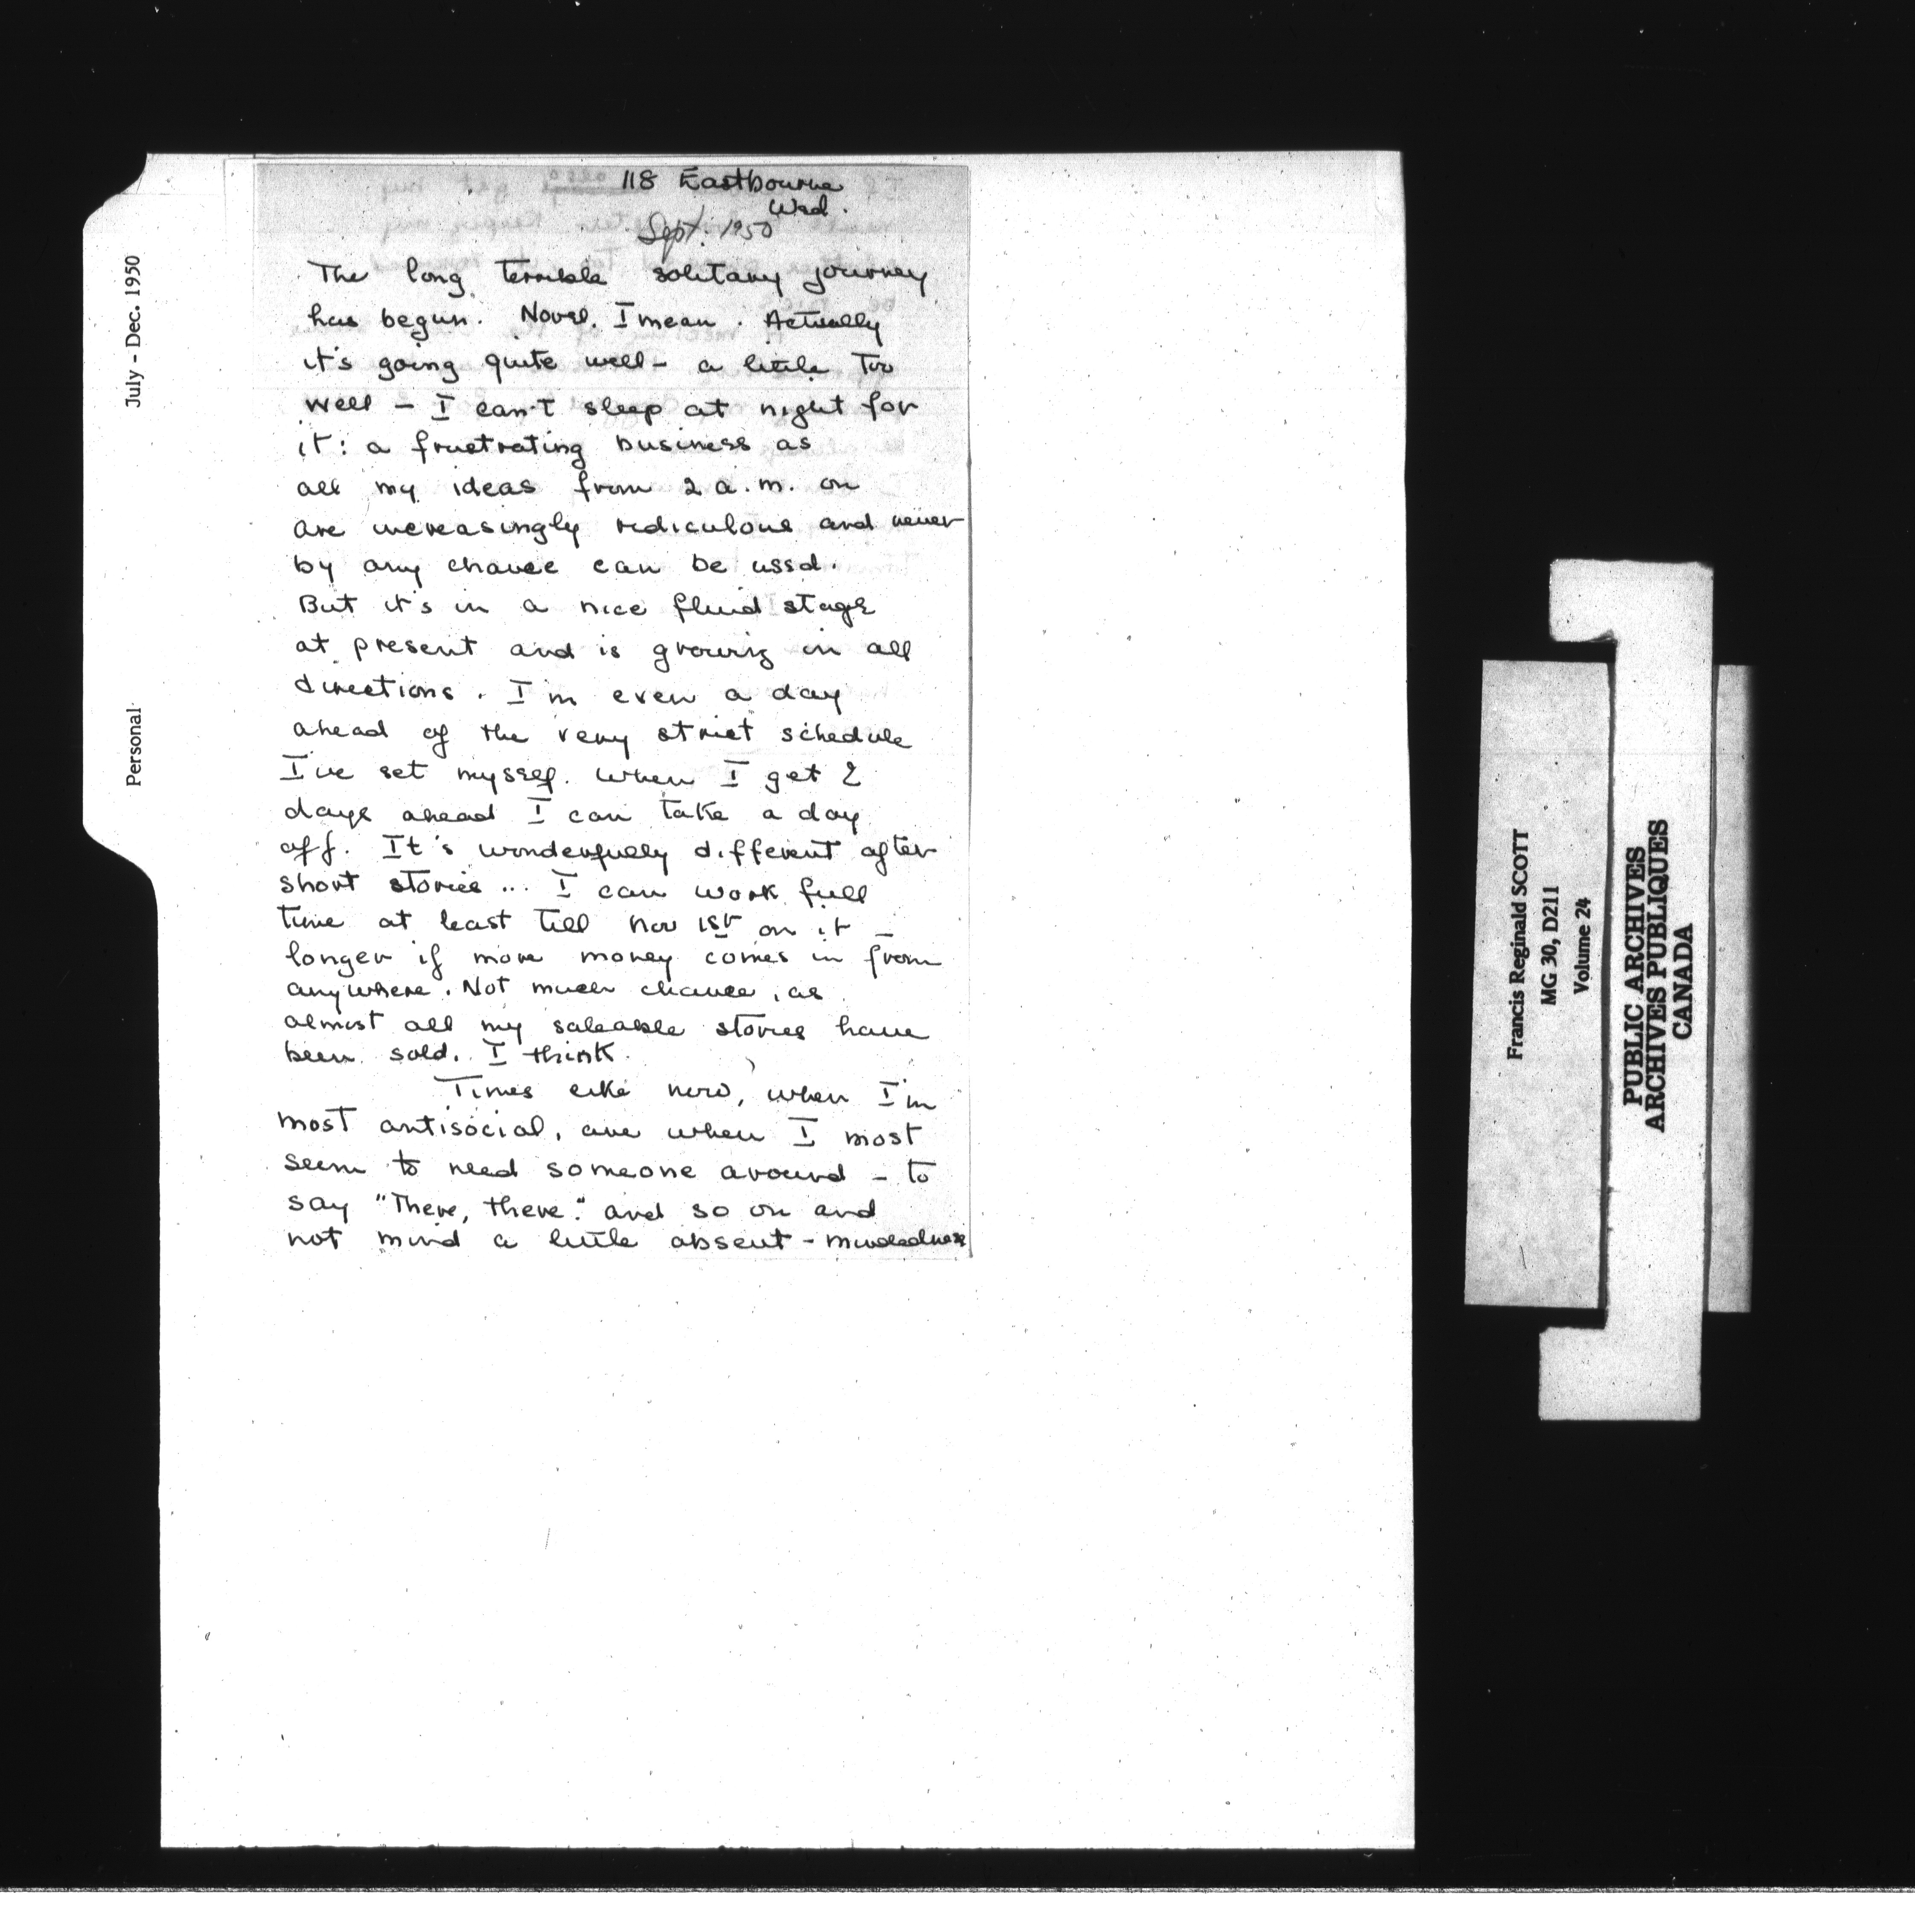 118 Eastbourne
Wed.
Sept. 1950
The long terrible solitary journey
has begun. Novel, I mean. Actually
it's going quite well - a little too
well - I can't sleep at night for
it: a frustrating business as
all my ideas from 2 a.m. on
are increasingly ridiculous and never
by any chance can be used.
But it's in a nice fluid stage
at present and is growing in all
directions. I'm even a day
ahead of the very strict schedule
I've set myself. When I get 2
days ahead I can take a day
off. It's wonderfully different after
short stories... I can work full
time at least till Nov 1st on it -
longer if more money comes in from
anywhere. Not much chance, as
almost all my saleable stories have
been sold, I think.
Times like now, when I'm
most antisocial, are when I most
seem to need someone around - to
say "There, there." and so on and
not mind a little absent-mindedness
July - Dec. 1950
Personal
Francis Reginald SCOTT
MG 30, D211
Volume 24
PUBLIC ARCHIVES
ARCHIVES PUBLIQUES
CANADA